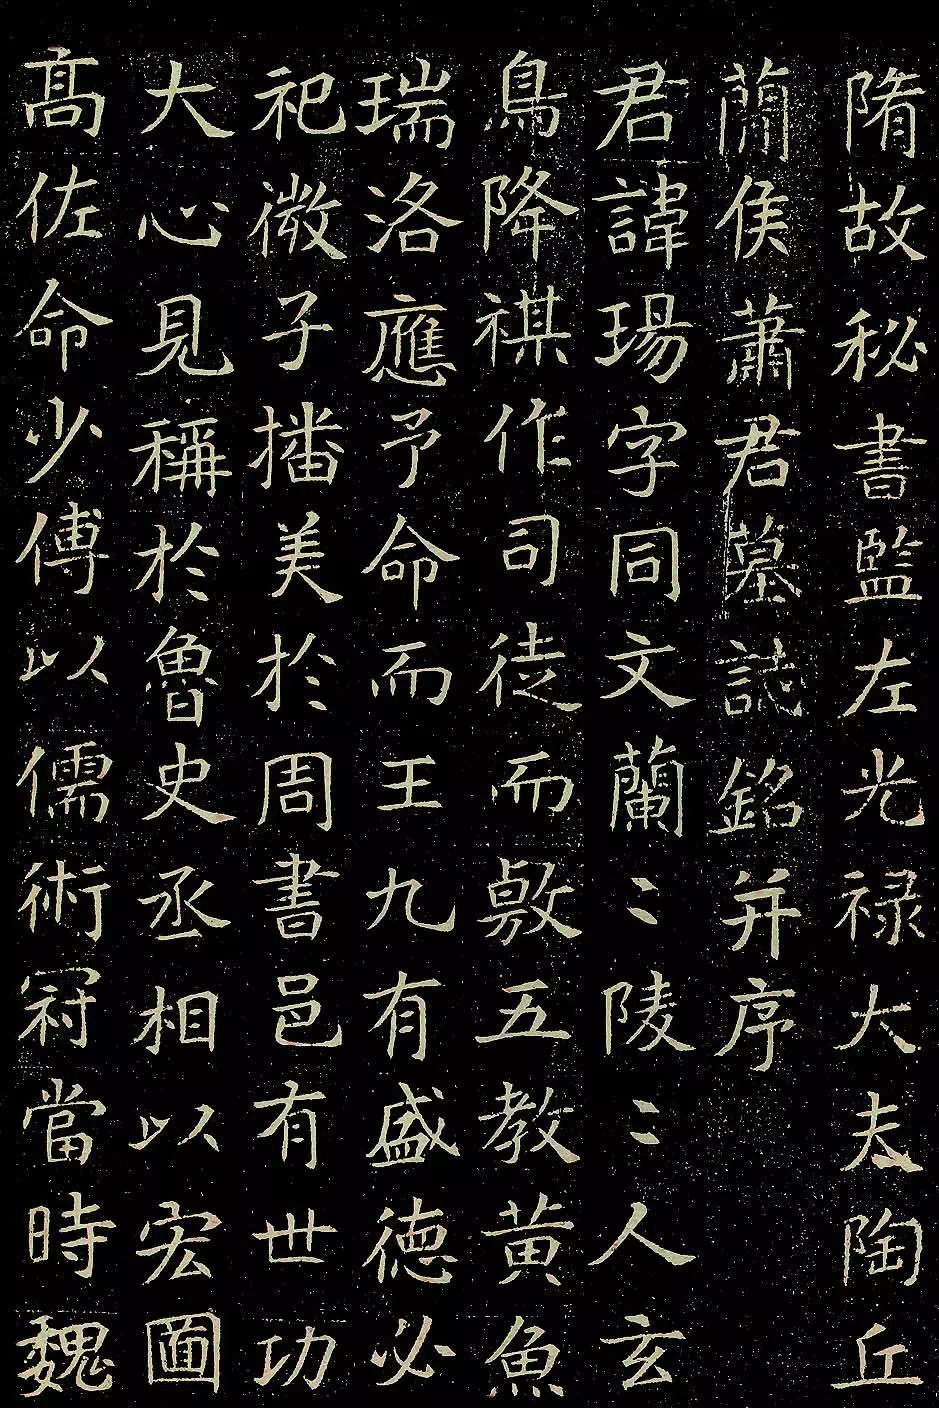 隋故秘書監左光禄大夫陶丘
簡侯蕭君墓誌銘并序
君諱瑒字同文蘭〻陵〻人玄
鳥降祺作司徒而敷五教黄魚
瑞洛應予命而王九有盛德必
祀微子播美於周書邑有世功
大心見稱於魯史丞相以宏圖
髙佐命少傅以儒術冠當時魏